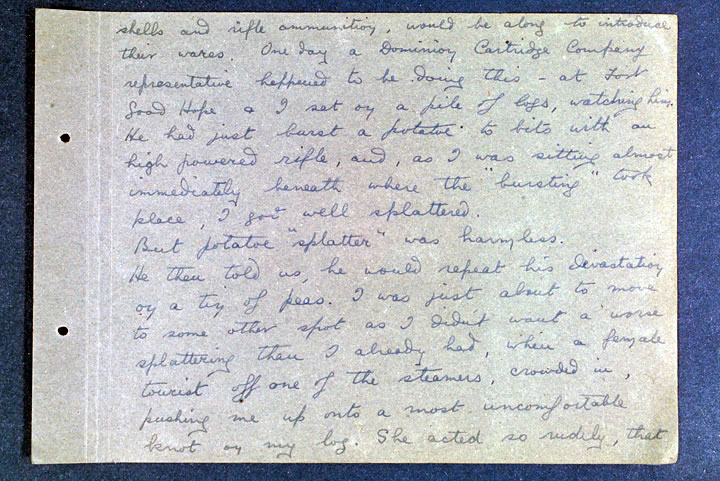 shells and rifle ammunition, would be along to introduce
their wares. One day a Dominion Cartridge Company
representative happened to be doing this - at Fort
Good Hope & I sat on a pile of logs, watching him.
He had just burst a potatoe to bits with an
high powered rifle, and, as I was sitting almost
immediately beneath where the "bursting" took
place, I got well splattered.
But potatoe "splatter" was harmless.
He then told us, he would repeat his devastation
on a tin of peas. I was just about to move
to some other spot as I didn't want a worse
splattering than I already had, when a female
tourist off one of the steamers, crowded in,
pushing me up onto a most uncomfortable
knot on my log. She acted so rudely, that